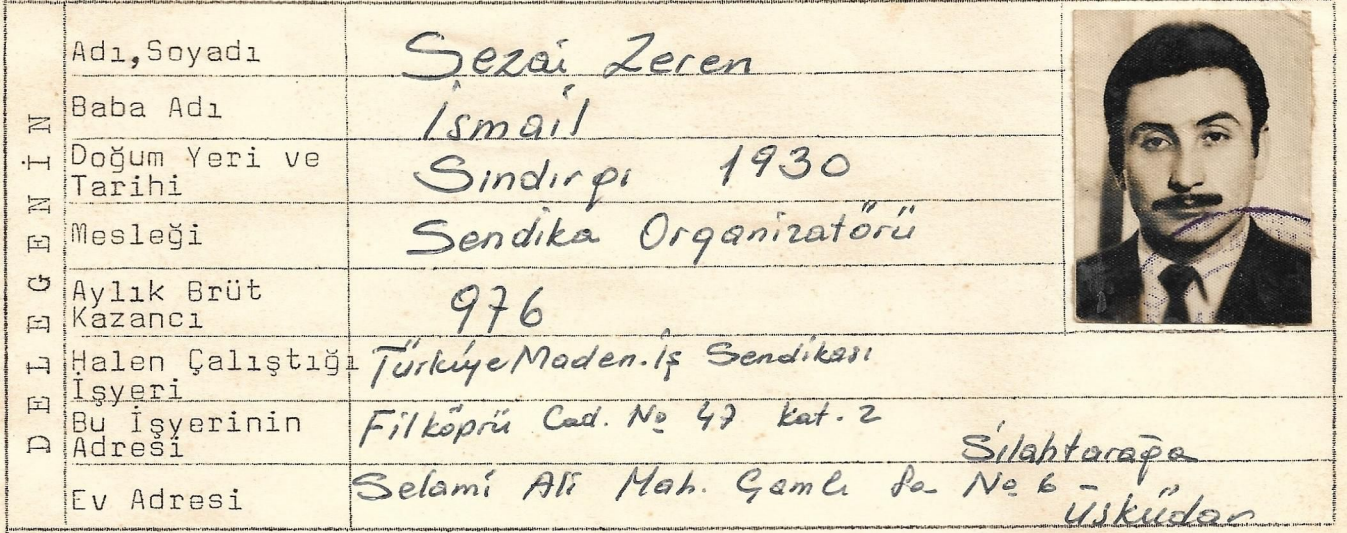 DELEGENİN
Adı,Soyadı Sezai Zeren
Baba Adı İsmail
Doğum Yeri ve
Tarihi Sındırgı 1930
Mesleği Sendika Organizatörü
Aylık Brüt
Kazancı 976
Halen Çalıştığı
İşyeri Türkiye Maden.iş Sendikası
Bu İşyerinin
Adresi Filköprü Cad. No 47 Kat. 2
Silahtarağa
Ev Adresi Selami Ali Mah. No 6 -
Üsküdar